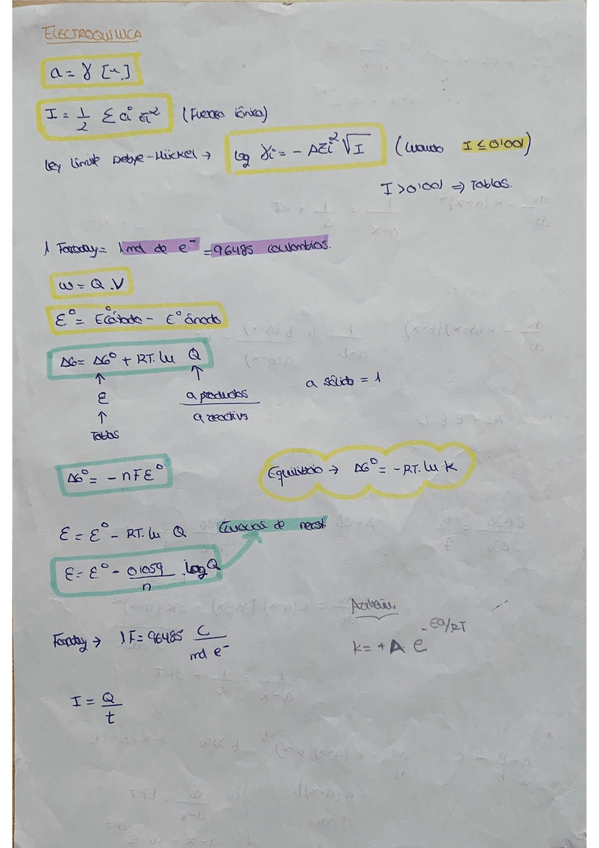 ELECTROQUÍMICA
a = γ [n.]
I = 1/2 Σ ci zi² (Fuerza iónica)
Ley límite Debye-Hückel → log γi = - AZi² √I (cuando I ≤ 0'001)
I > 0'001 ⇒ Tablas.
1 Faraday = 1 mol de e⁻ = 96485 coulombios.
w = Q . V
E° = E°cátodo - E° ánodo
ΔG = ΔG° + RT. ln Q
↑ ↑
E a productos / a reactivs a sólido = 1
↑
Tablas
ΔG° = - nFE°
Equilibrio → ΔG° = - RT. ln K
E = E° - RT. ln Q Ecuacias de nerst
E = E° - 0'059/n . log Q
Faraday → 1F = 96485 C / mol e⁻
k = + A e^-Ea/RT
I = Q/t